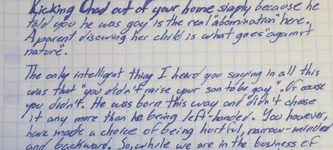 Kicking Chad out of your home simply because he
told you he was gay is the real "abomination" here.
A parent disowning her child is what goes "against
nature".
The only intelligent thing I heard you saying in all this
was that "you didn't raise your son to be gay". Of course
you didn't. He was born this way and didn't choose
it any more than he being left-handed. You however,
have made a choice of being hurtful, narrow-minded
and backward. So, while we are in the business of